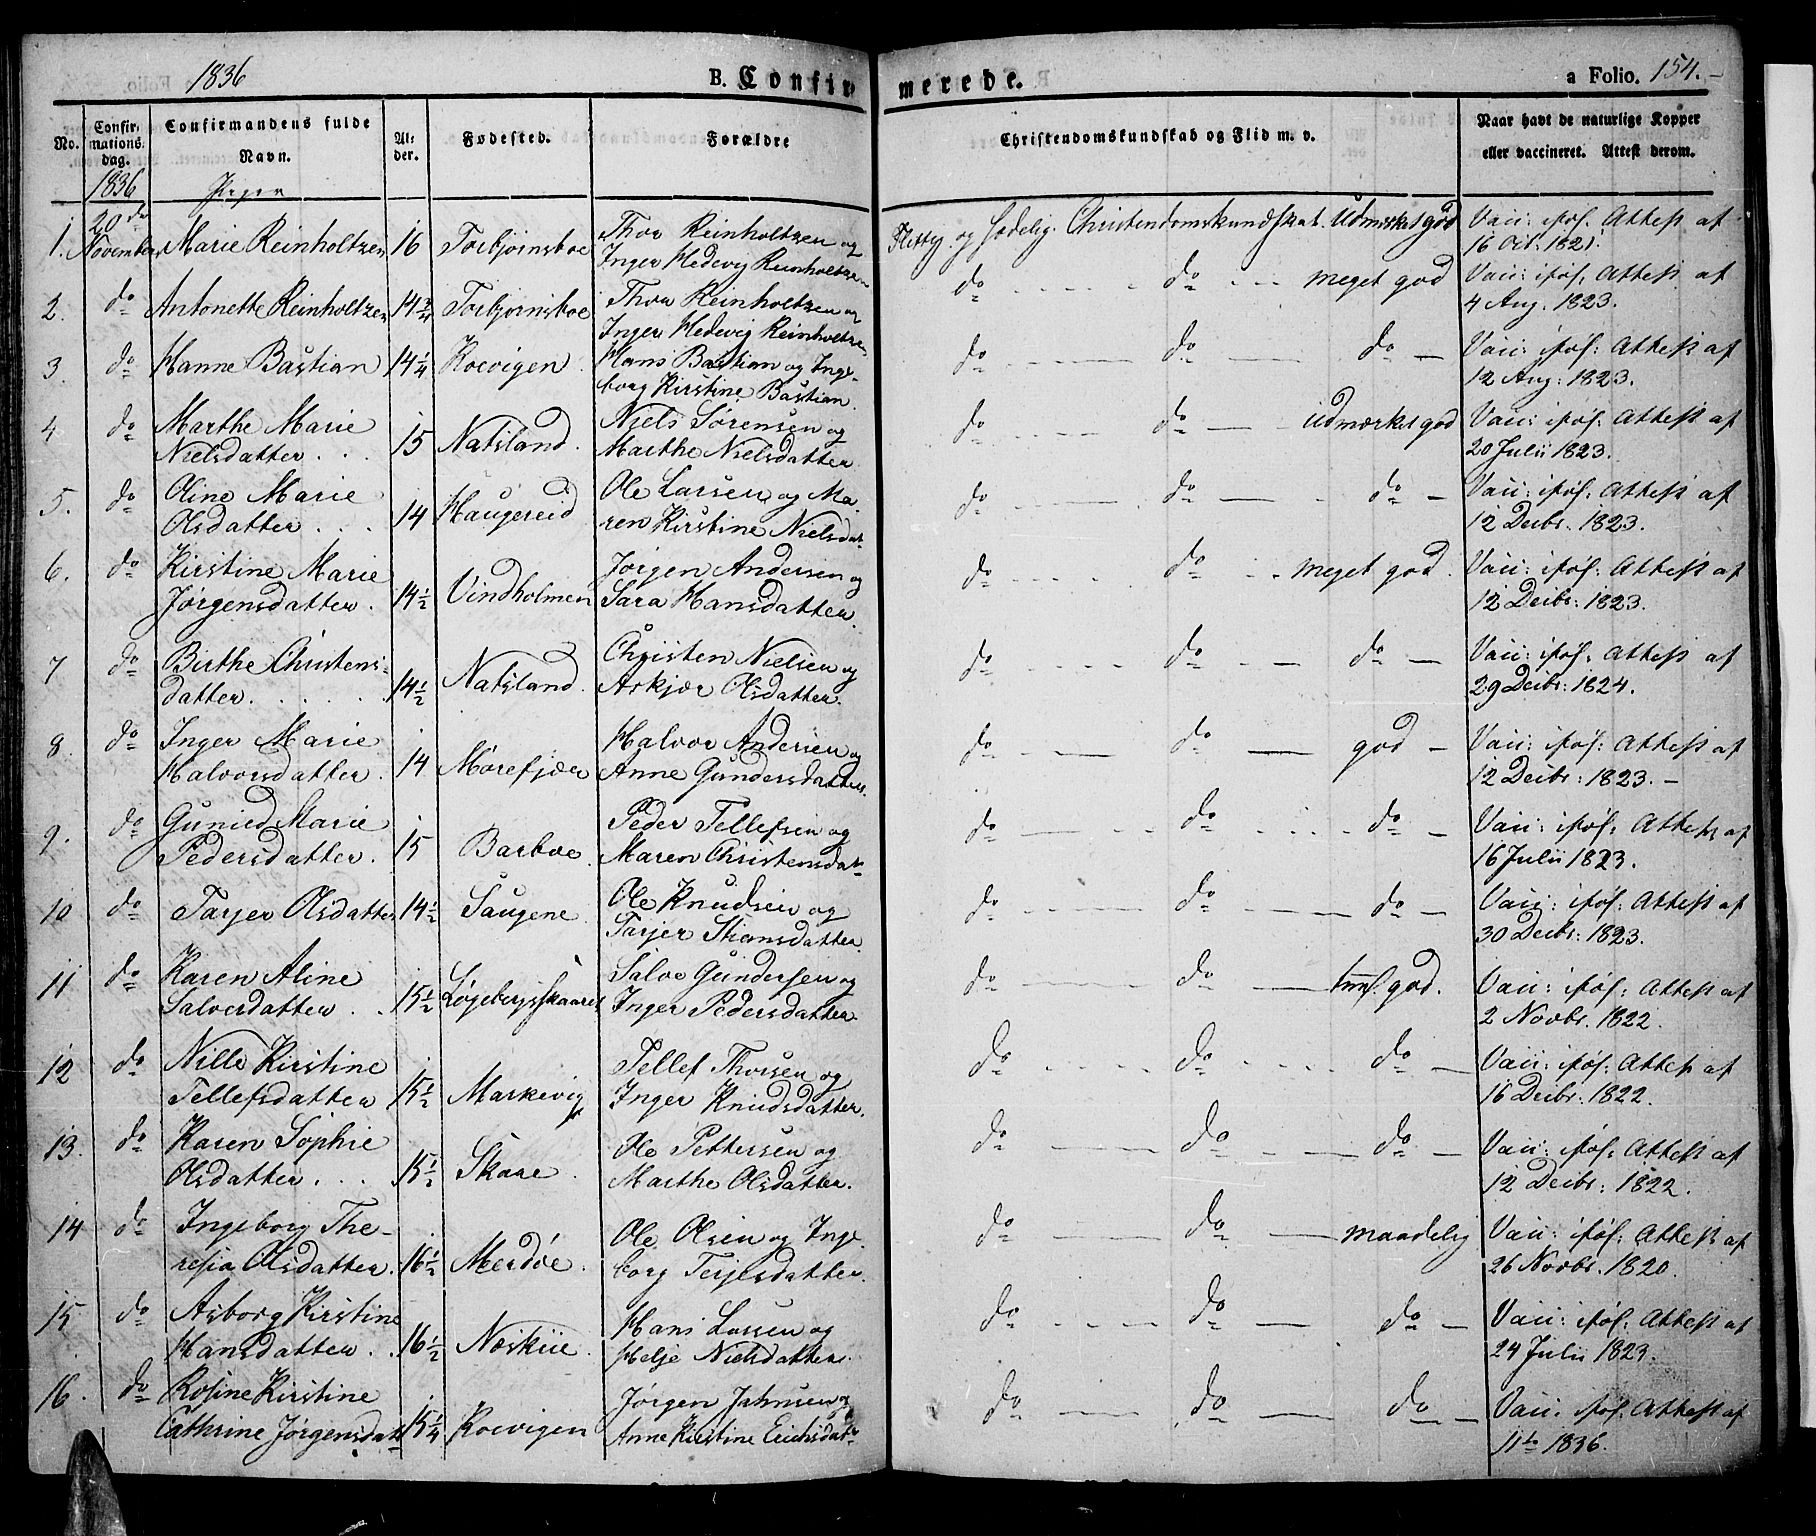 1836 B. Confir-
merede. a Folio. 154.-
No. Confir-mations-dag. Confirmandens fulde Navn. Al-der. Fødested. Forældre Christendomskundskab og Flid m. v. Naar havt de naturlige Kopper eller vaccineret. Attest derom.
1836 Piger
1. 20de November Marie Reinholtzen 16 Torbjørnsboe Thor Reinholtzen og
Inger Hedevig Reinholtzen Flittig og Sædelig. Christendomskundskab. Udmærket god Vacc: iføl: Attest af
16 Oct. 1821.
2. do Antonette Reinholtzen 14 3/4 Torbjørnsboe Thor Reinholtzen og
Inger Hedevig Reinholtzen do do meget god Vacc: iføl: Attest af
4 Aug. 1823.
3. do Hanne Bastian 14 1/4 Roevigen Hans Bastian og Inge-
borg Kirstine Bastian. do do do Vacc: iføl: Attest af
12 Aug: 1823.
4 do Marthe Marie
Nielsdatter . . . 15 Natsland. Niels Sørensen og
Marthe Nielsdatter do do udmærket god Vacc: iføl: Attest af
20 Julii 1823.
5. do Oline Marie
Olsdatter . . . 14 Haugereid Ole Larsen og Ma-
ren Kirstine Nielsdat- do do do Vacc: iføl: Attest af
12 Decbr. 1823.
6. do Kirstine Marie
Jørgensdatter. 14 1/2 Vindholmen Jørgen Andersen og
Sara Hansdatter. do do meget god. Vacc: iføl: Attest af
12 Decbr: 1823.
7 do Birthe Christens-
datter. . . . . 14 1/2 Natsland. Christen Nielsen og
Askjær Olsdatter. do do do Vacc: iføl: Attest af
29 Decbr: 1824.
8. do Inger Marie
Halvorsdatter. 14 Mørefjær Halvor Andersen og
Anne Gundersdatter. do do god Vacc: iføl: Attest af
12 Decbr: 1823. -
9. do Gunild Marie
Pedersdatter. 15 Barboe. Peder Tellefsen og
Maren Christensdat- do do do Vacc: iføl: Attest af
16 Julii 1823.
10 do Tarjer Olsdatter 14 1/2 Saugene. Ole Knudsen og
Tarjer Stiansdatter. do do do Vacc: iføl: Attest af
30 Decbr: 1823.
11 do Karen Aline
Salvesdatter . . 15 1/2 Løgebergsskaaret Salve Gundersen og
Inger Pedersdatter do do god. Vacc: iføl: Attest af
2 Novbr. 1822.
12 do Nille Kirstine
Tellefsdatter 15 1/2 Markevig Tellef Thorsen og
Inger Knudsdatter. do do do Vacc: iføl: Attest af
16 Decbr. 1822.
13. do Karen Sophie
Olsdatter . . . 15 1/2 Skare. Ole Pettersen og
Marthe Olsdatter. do do do Vacc: iføl: Attest af
12 Decbr: 1822.
14 do Ingeborg The-
resia Olsdatter. 16 1/2 Merdøe. Ole Olsen og Inge-
borg Terjesdatter. do do maadelig Vacc: iføl: Attest af
26 Novbr. 1820.
15 do Asborg Kirstine
Hansdatter . . 16 1/2 Næskiie. Hans Larsen og
Helje Nielsdatter. do do do Vacc: iføl: Attest af
24 Julii 1823.
16. do Rosine Kirstine
Cathrine Jørgensdatt 15 1/4 Roevigen Jørgen Jahnsen og
Anne Kirstine Erichsdat- do do do Vacc: iføl: Attest af
11te 1836.